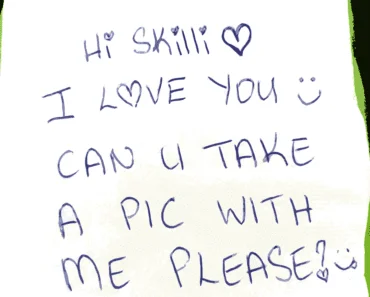 Hi Skilli ♡
I L♡VE YOU ☺
CAN U TAKE
A PIC WITH
ME PLEASE? ☺